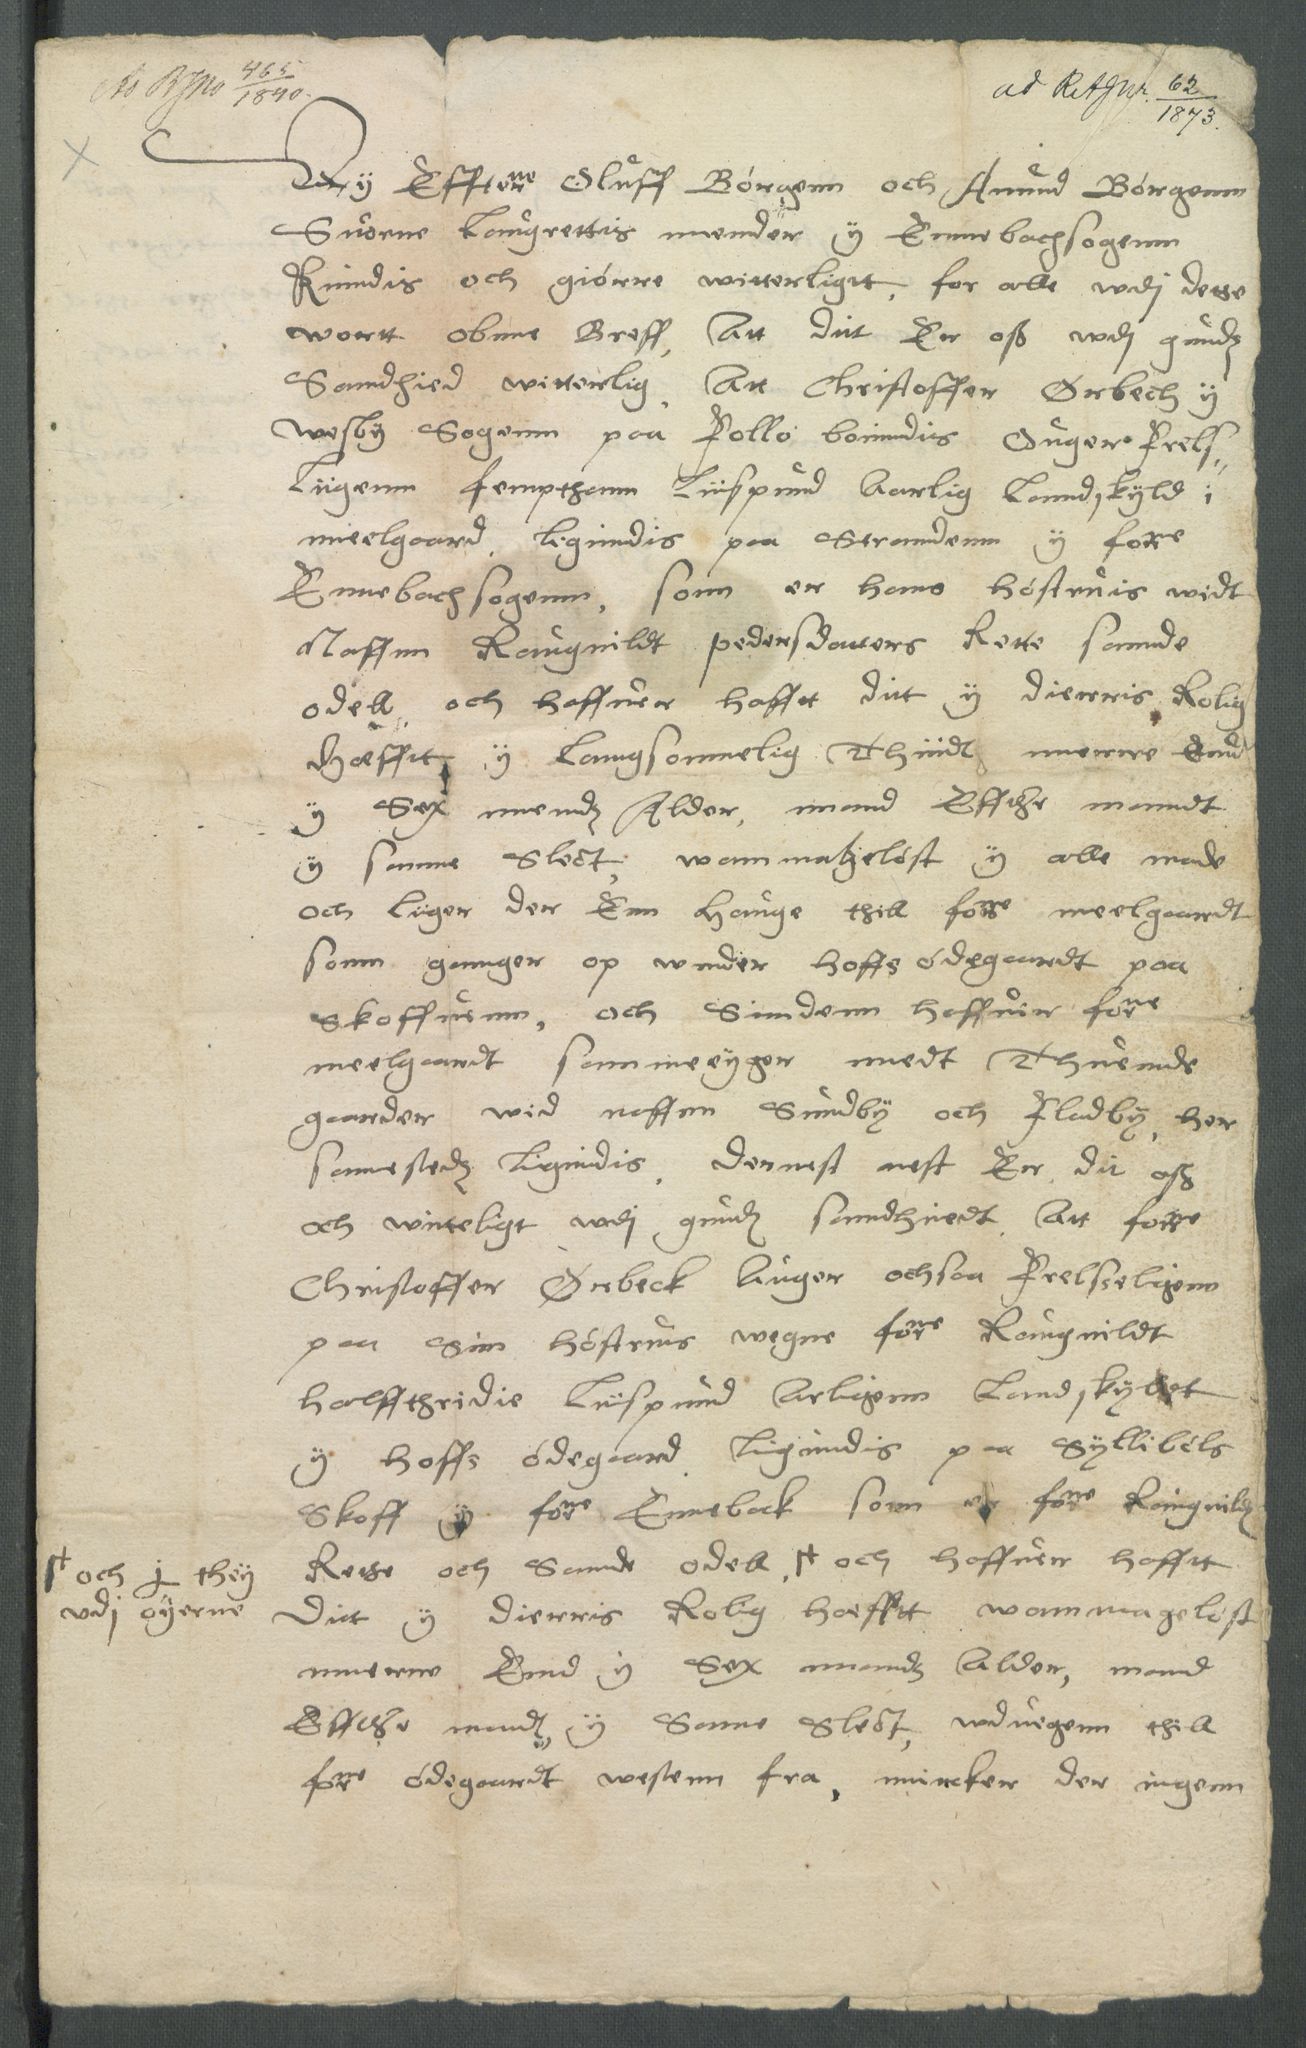 Ad RJNo 465/1840.
ad RAJnr. 62/1873.
Wy Efftterne Oluff Börgenn och Amund Börgenn
Suorne Laugrettis mender y Ennebachsogenn
Kiendis och giörre witterligtt, for alle wdj dette
wortt obnne Breff, Att ditt Er oß wdj gudz
Sandhied witterlig, Att Christoffer Ørbech y
Wesby Sogenn paa Follo boinndis Ouger Frels„
Liigenn sempthann Liispund Aarlig Landskyld i
meelgaard, liginndis paa Strandenn y forne
Ennebachsogenn, som er hans höstruis widt
Naffnn Raugnildt pedersdatters Rette sannde
odell, och haffuer hafftt ditt y dierris Rolig
Hæfftt, y Langsommelig Thiidt merre End
y Sex mendz Alder, mand Effther manndt
y samme Slectt, wanmatzelöst y alle made
och liiger der Enn Hauge thill forne meelgaardt
somm gannger op wnnder hoffs ödegaardt paa
Skoffuenn, och Sinndenn haffuer forne
meelgaardt sammeeyger medt Thuennde
gaarder wid naffnn Sundby och Fladby, her
samestedz liginndis, Dernest nest Er dit oß
och witteligt wdj gudz sandhiedt Att forne
Christoffer Ørbeck Auger ochsaa Frelsseligenn
paa Sinn höstruis wegne forne Raugnildt
halffthridie Liispund Arligenn Landskyldt
y hoffs ödegaard liginndis paa Syllibóls
Skoff y forne Enneback som er forne Raugnildz
Rette och Sannde odell, och haffuer hafftt
och i they
vdj öyerne
Ditt y dierris Rolig hæfftt wanmagelöst
merre End y Sex mandz Alder, mand
Effther mandz y Same Slectt, wduegenn thill
forne ödegaardt westenn fra, mircker der ingenn